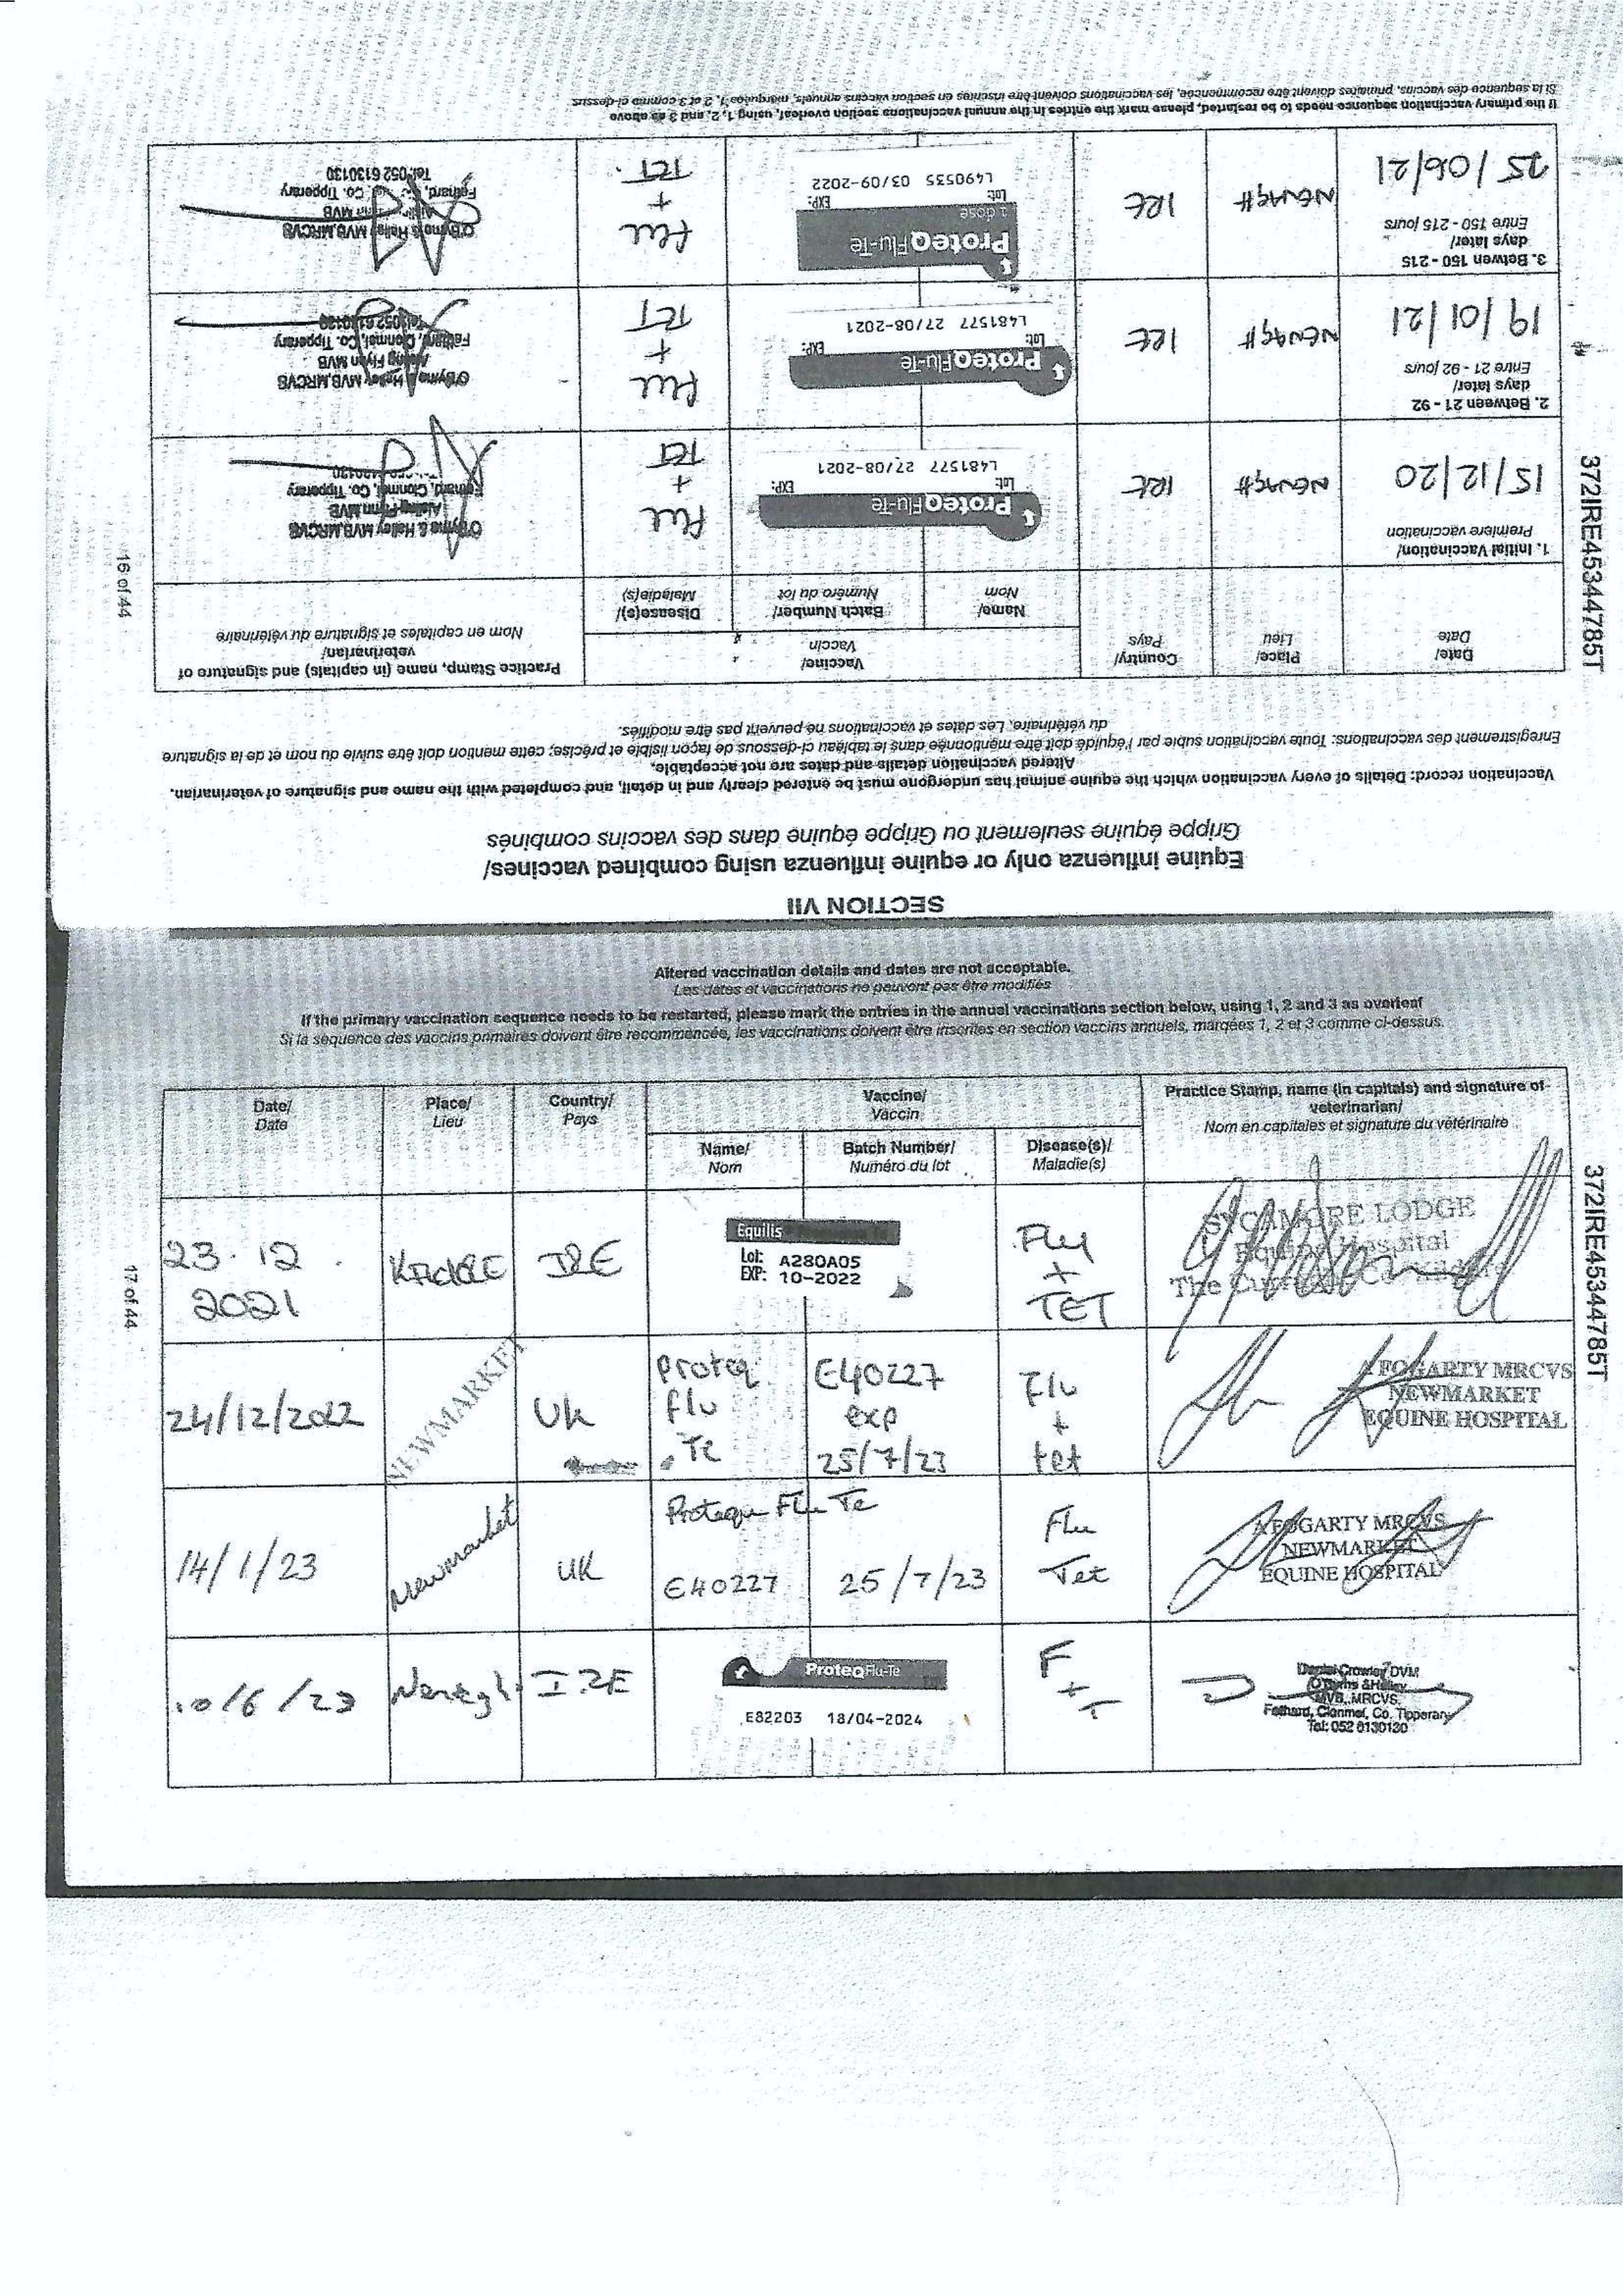 SECTION VII
Equine influenza only or equine influenza using combined vaccines/
Grippe équine seulement ou Grippe équine dans des vaccins combinés
Vaccination record: Details of every vaccination which the equine animal has undergone must be entered clearly and in detail, and completed with the name and signature of veterinarian.
Altered vaccination details and dates are not acceptable.
Enregistrement des vaccinations: Toute vaccination subie par l'équidé doit être mentionnée dans le tableau ci-dessous de façon lisible et précise; cette mention doit être suivie du nom et de la signature
du vétérinaire. Les dates et vaccinations ne peuvent pas être modifiés.
372IRE45344785T
Date/
Date
Place/
Lieu
Country/
Pays
Vaccine/
Vaccin
Name/
Nom
Batch Number/
Numéro du lot
Disease(s)/
Maladie(s)
Practice Stamp, name (in capitals) and signature of
veterinarian/
Nom en capitales et signature du vétérinaire
1. Initial Vaccination/
Première vaccination
15/12/20
NENAGH
IRE
ProteqFlu-Te
Lot: EXP:
L481577 27/08-2021
Flu
+
TET
O'Byrne & Halley MVB,MRCVS
Aisling Flynn MVB
Fethard, Clonmel, Co. Tipperary
2. Between 21 - 92
days later/
Entre 21 - 92 jours
19/01/21
NENAGH
IRE
ProteqFlu-Te
Lot: EXP:
L481577 27/08-2021
Flu
+
TET
O'Byrne & Halley MVB,MRCVS
Aisling Flynn MVB
Fethard, Clonmel, Co. Tipperary
Tel: 052 6130130
3. Betwen 150 - 215
days later/
Entre 150 - 215 jours
25/06/21
NENAGH
IRE
ProteqFlu-Te
1 dose
Lot: EXP:
L490535 03/09-2022
Flu
+
TET.
O'Byrne & Halley MVB,MRCVS
MVB
Fethard, Co. Tipperary
Tel: 052 6130130
If the primary vaccination sequence needs to be restarted, please mark the entries in the annual vaccinations section overleaf, using 1, 2, and 3 as above
Si la séquence des vaccins, primaires doivent être recommencée, les vaccinations doivent être inscrites en section vaccins annuels, marquées 1, 2 et 3 comme ci-dessus
16 of 44
Altered vaccination details and dates are not acceptable.
Les dates et vaccinations ne peuvent pas être modifiés
If the primary vaccination sequence needs to be restarted, please mark the entries in the annual vaccinations section below, using 1, 2 and 3 as overleaf
Si la séquence des vaccins primaires doivent être recommencée, les vaccinations doivent être inscrites en section vaccins annuels, marqées 1, 2 et 3 comme ci-dessus.
Date/
Date
Place/
Lieu
Country/
Pays
Vaccine/
Vaccin
Name/
Nom
Batch Number/
Numéro du lot
Disease(s)/
Maladie(s)
Practice Stamp, name (in capitals) and signature of
veterinarian/
Nom en capitales et signature du vétérinaire
23.12.
2021
KILDARE
IRE
Equilis
Lot: A280A05
EXP: 10-2022
Flu
+
TET
SYCAMORE LODGE
Equine Hospital
The Curragh Co Kildare
24/12/2022
NEWMARKET
UK
Proteq
flu
Te
E40227
exp
25/7/23
Flu
+
tet
A FOGARTY MRCVS
NEWMARKET
EQUINE HOSPITAL
14/1/23
Newmarket
UK
Protequ Flu Te
E40227
25/7/23
Flu
Tet
A FOGARTY MRCVS
NEWMARKET
EQUINE HOSPITAL
10/6/23
Nenagh
IRE
ProteqFlu-Te
E82203 18/04-2024
F
+
T
Daniel Crowley DVM
O'Byrne & Halley
MVB, MRCVS.
Fethard, Clonmel, Co. Tipperary
Tel: 052 6130130
17 of 44
372IRE45344785T